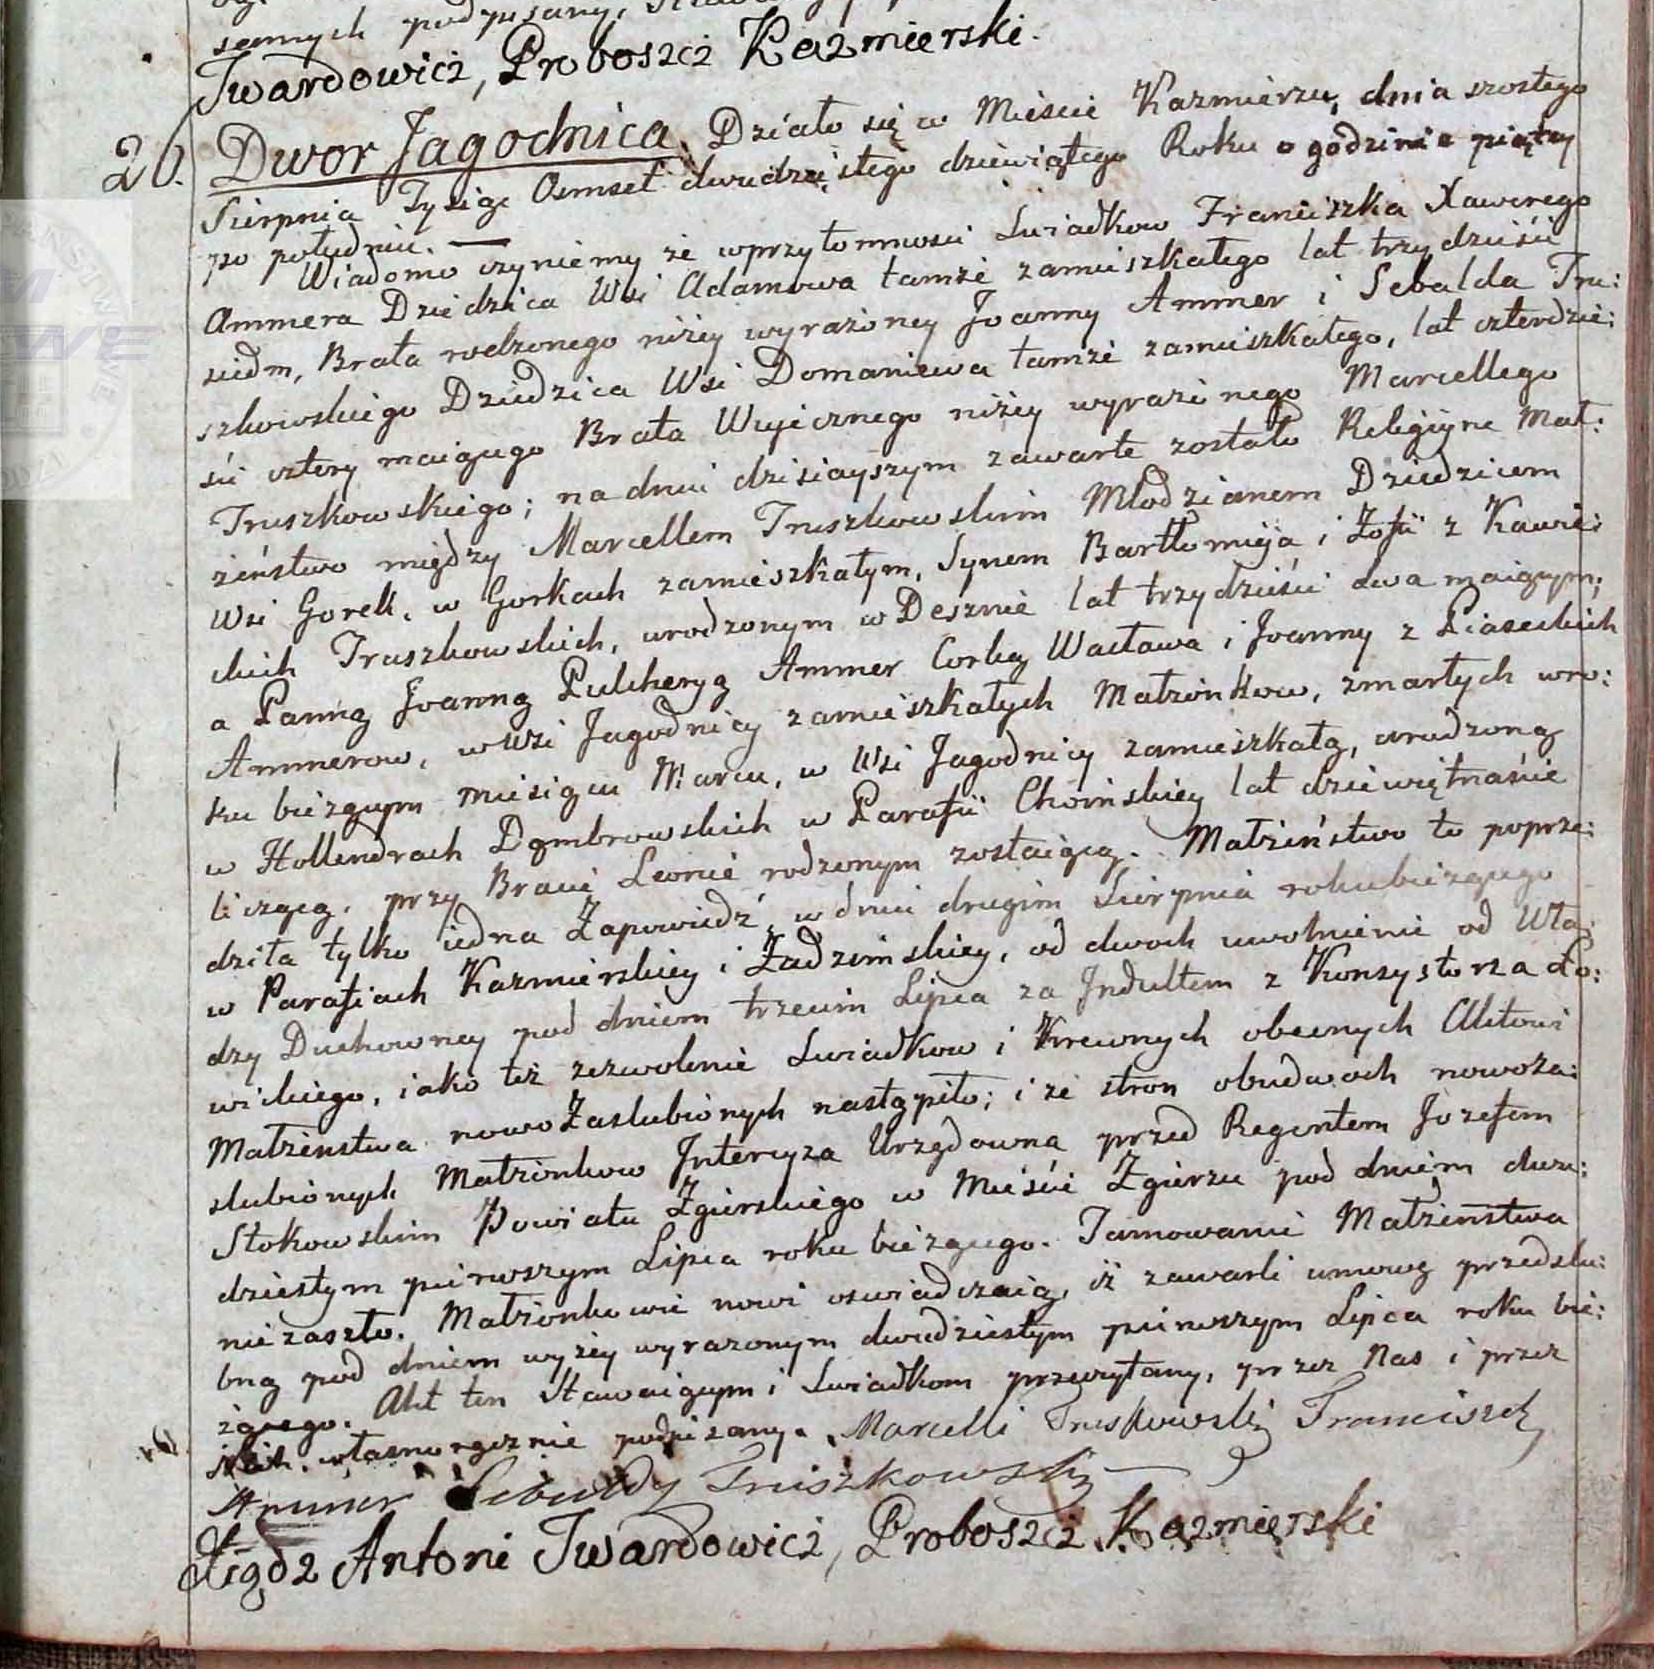 samych podpisany,
Twardowicz, Proboszcz Kazmierski.
20. Dwor Jagodnica. Działo się w Mieście Kazmierzu, dnia szostego
Sierpnia Tysiąc Osmset dwudziestego dziewiątego Roku o godzinie piątey
po południu. — Wiadomo czyniemy że wprzytomności Swiadkow Franciszka Xawerego
Ammera Dziedzica Wsi Adamowa tamże zamieszkałego lat trzydzieści
siedm, Brata rodzonego niżey wyrażoney Joanny Ammer i Sebalda Tru:
szkowskiego Dziedzica Wsi Domaniewa tamże zamieszkałego, lat czterdzie:
ści cztery maiącego Brata Wujecznego niżey wyrażonego Marcellego
Truszkowskiego; na dniu dzisiayszym zawarte zostało Religijne Mał:
żeństwo między Marcellem Truszkowskim Młodzianem Dziedzicem
Wsi Gorek, w Gorkach zamieszkałym, Synem Bartłomieja i Zofii z Kawie:
ckich Truszkowskich, urodzonym w Desznie lat trzydzieści dwa maiącym;
a Panną Joanną Pulcheryą Ammer Corką Wacława i Joanny z Piaseckich
Ammerow, w wsi Jagodnicy zamieszkałych Małżonkow, zmarłych w ro:
ku bieżącym miesiącu Marcu, w Wsi Jagodnicy zamieszkałą, urodzoną
w Hollendrach Dąmbrowskich w Parafii Choińskiey lat dziewiętnaście
liczącą, przy Bracie Leonie rodzonym zostaiącą. Małżeństwo to poprze:
dziła tylko iedna Zapowiedź w dniu drugim Sierpnia roku bieżącego
w Parafiach Kazmierskiey i Zadzimskiey, od dwoch uwolnienie od Wła:
dzy Duchowney pod dniem trzecim Lipca za Indultem z Konsystorza Ło:
wickiego, iako też zezwolenie Swiadkow i Krewnych obecnych Aktowi
Małżeństwa nowo Zaslubionych nastąpiło; i ze stron obudwoch nowoza:
slubionych Małżonkow Intercyza Urzędowna przed Regentem Jozefem
Stokowskim Powiatu Zgierskiego w Mieście Zgierzu pod dniem dwu:
dziestym pierwszym Lipca roku bieżącego. Tamowanie Małżeństwa
nie zaszło. Małżonkowie nowi oswiadczaią, iż zawarli umowę przedslu:
bną pod dniem wyżey wyrażonym dwudziestym pierwszym Lipca roku bie:
żącego. Akt ten Stawaiącym i Swiadkom przeczytany, przez Nas i przez
Nich własnoręcznie podpisany. Marcelli Truszkowski Franciszek
Ammer Sebaldy Truszkowski
Xiądz Antoni Twardowicz, Proboszcz Kazmierski